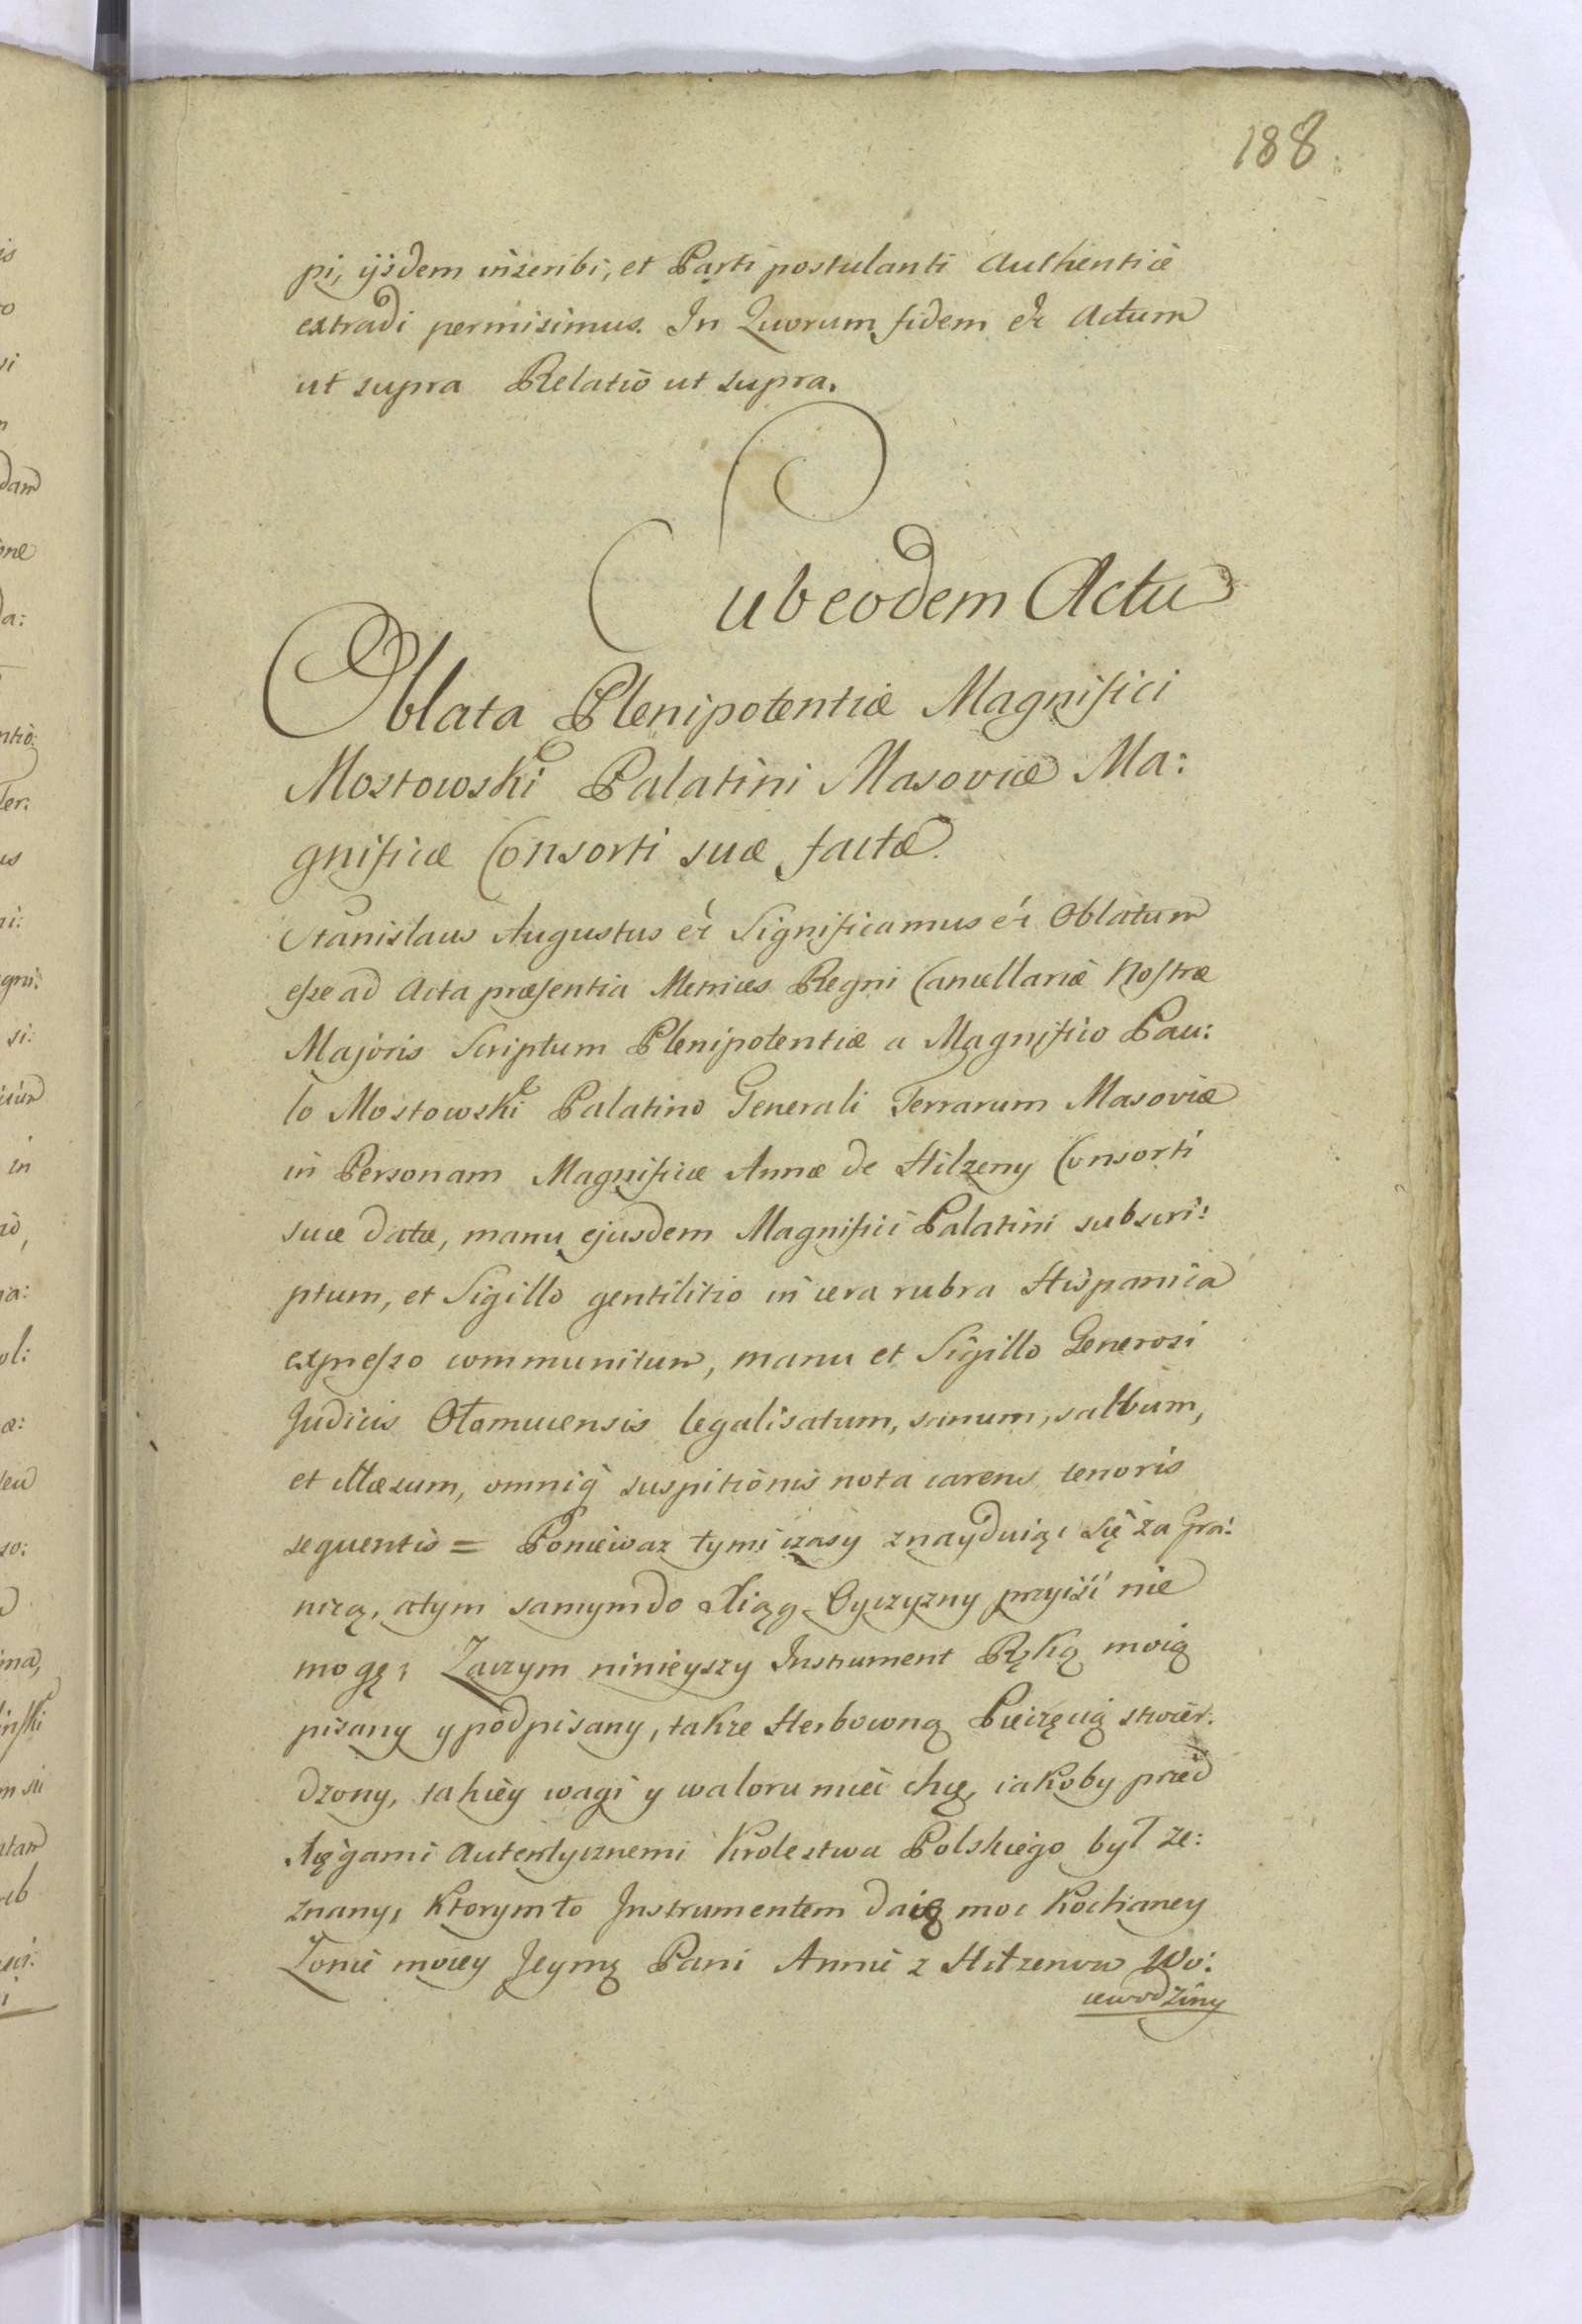 188.
pi, ijsdem inscribi, et Parti postulanti Authenticè
extradi permisimus. In Quorum fidem etc Actum
ut supra Relatio ut supra.
Sub eodem Actu
Oblata Plenipotentiæ Magnifici
Mostowski Palatini Masoviæ Ma:
gnificæ Consorti suæ factæ.
Stanislaus Augustus etc Significamus etc Oblatum
esse ad Acta præsentia Metrices Regni Cancellariæ Nostræ
Majoris Scriptum Plenipotentiæ a Magnifico Pau:
lo Mostowski Palatino Generali Terrarum Masoviæ
in Personam Magnificæ Annæ de Hilzeny Consorti
suæ datæ, manu ejusdem Magnifici Palatini subscri:
ptum, et Sigillo gentilitio in cera rubra Hispanica
expresso communitum, manu et Sigillo Generosi
Judicis Olomucensis legalisatum, sanum, salvum,
et illæsum, omniq suspitionis nota carens tenoris
sequentis = Poniewaz tymi czasy znayduiąc się za Gra:
nicą, atym samym do Xiąg Oyczyzny przyiść nie
mogę; Zaczym ninieyszy Instrument Ręką moią
pisany y podpisany, także Herbowną Pieczęcią stwier:
dzony, takiey wagi y waloru mieć chcę, iakoby przed
Xięgami Autentycznemi Krolestwa Polskiego był ze:
znany, Ktorym to Instrumentem daię moc Kochaney
Zonie moiey Jeymę Pani Annie z Hilzenow Wo:
iewodziny